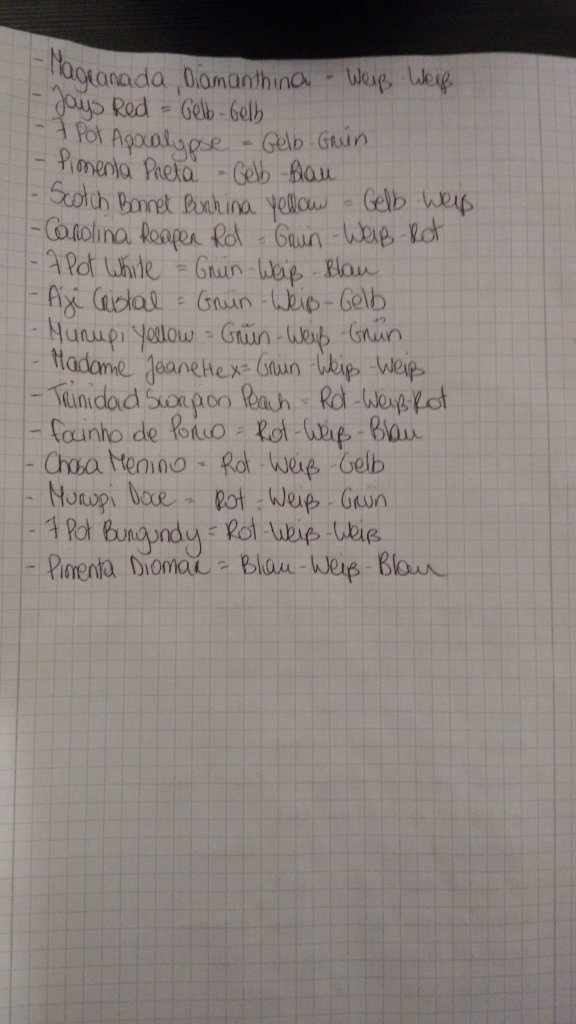 - Magranada Diamanthina = Weiß-Weiß
- Jays Red = Gelb-Gelb
- 7 Pot Apocalypse = Gelb-Grün
- Pimenta Preta = Gelb-Blau
- Scotch Bonnet Burkina Yellow = Gelb-Weiß
- Carolina Reaper Rot = Grün-Weiß-Rot
- 7 Pot White = Grün-Weiß-Blau
- Aji Cristal = Grün-Weiß-Gelb
- Murupi Yellow = Grün-Weiß-Grün
- Madame Jeanette x = Grün-Weiß-Weiß
- Trinidad Scorpion Peach = Rot-Weiß-Rot
- Focinho de Porco = Rot-Weiß-Blau
- Menino = Rot-Weiß-Gelb
- Murupi Doce = Rot-Weiß-Grün
- 7 Pot Burgundy = Rot-Weiß-Weiß
- Pimenta Diomar = Blau-Weiß-Blau